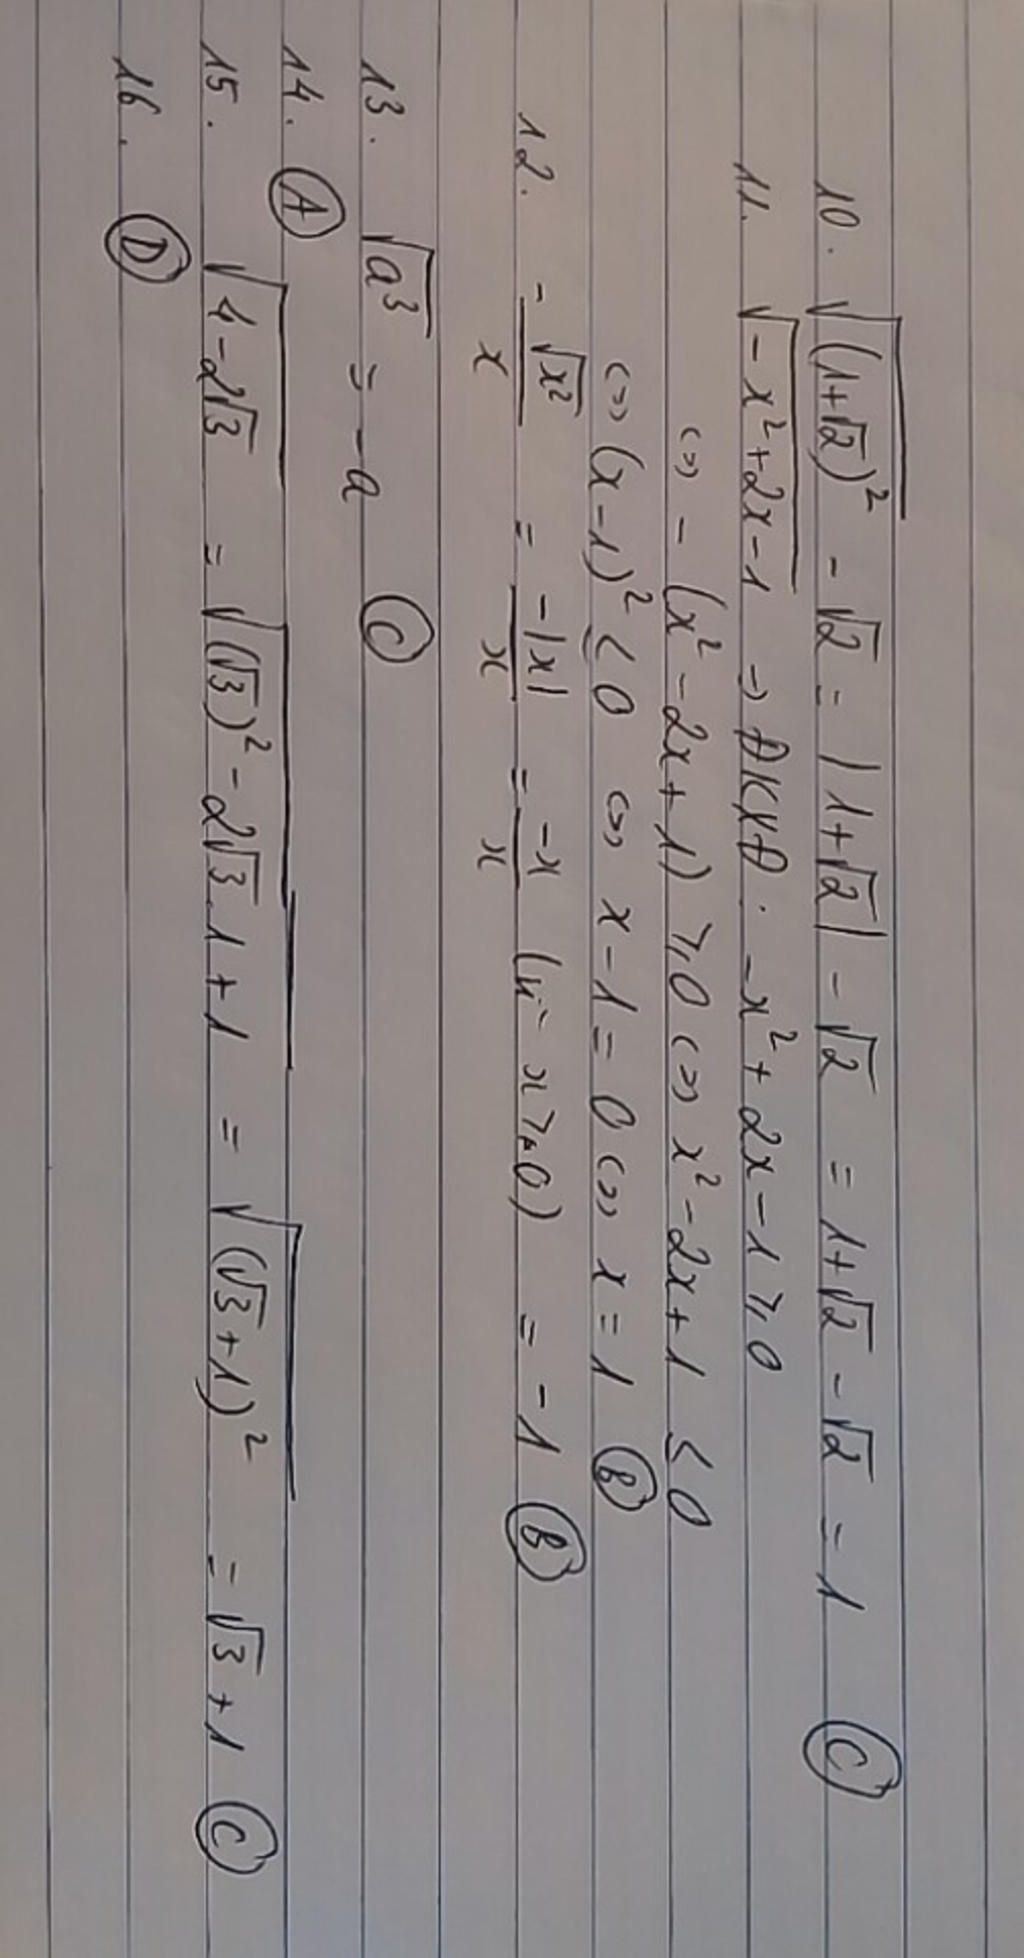 10. √(1+√2)² - √2 = |1+√2| - √2 = 1+√2 - √2 = 1 (C)
11. √-x²+2x-1 → ĐKXĐ: -x²+2x-1 ≥ 0
<=> - (x²-2x+1) ≥ 0 <=> x²-2x+1 ≤ 0
<=> (x-1)² ≤ 0 <=> x-1=0 <=> x=1 (B)
12. -√x²/x = -|x|/x = -x/x (vì x≥0) = -1 (B)
13. √a³ = -a (C)
14. (A)
15. √4-2√3 = √(√3)²-2√3.1+1 = √(√3+1)² = √3+1 (C)
16. (D)